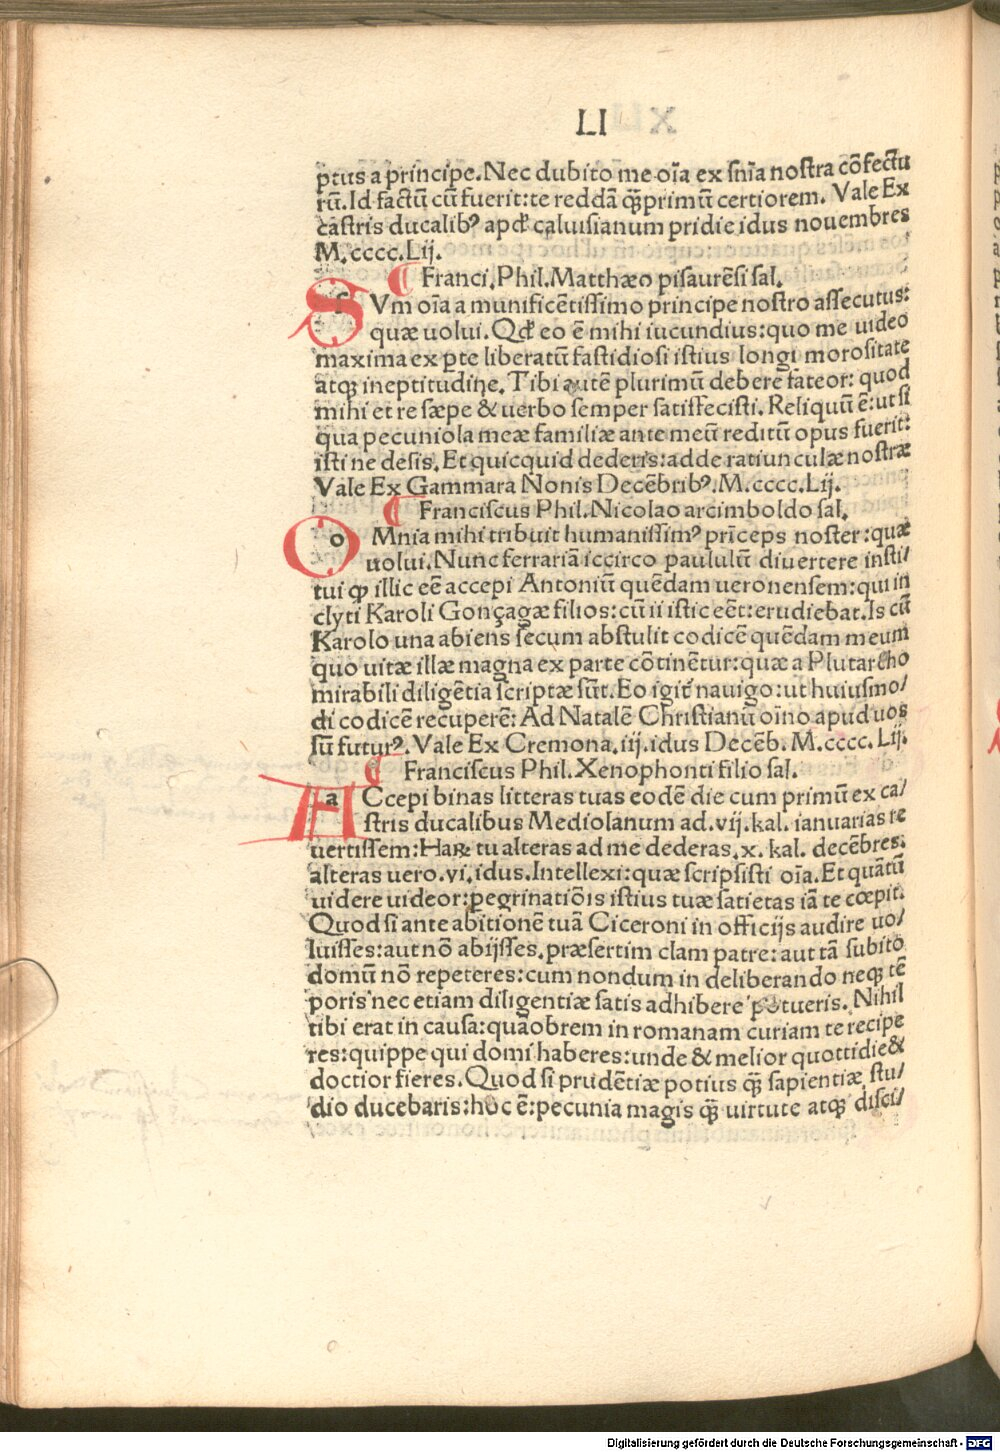 LI
ptus a principe. Nec dubito me oīa ex snīa nostra cōfectu
rū. Id factū cū fuerit: te reddā qꝫprimū certiorem. Vale Ex
castris ducalibꝰ apđ caluisianum pridie idus nouembres
M.cccc.Lij.
Franci. Phil. Matthæo pisaurēsi sal.
SVm oīa a munificētissimo principe nostro assecutus:
quæ uolui. Qđ eo ē mihi iucundius: quo me uideo
maxima ex ꝑte liberatū fastidiosi istius longi morositate
atqꝫ ineptitudine. Tibi autē plurimū debere fateor: quod
mihi et re sæpe & uerbo semper satisfecisti. Reliquū ē: ut si
qua pecuniola meæ familiæ ante meū reditū opus fuerit:
isti ne desis. Et quicquid dederis: adde ratiunculæ nostræ
Vale Ex Gammara Nonis Decēbribꝰ. M.cccc.Lij.
Franciscus Phil. Nicolao arcimboldo sal.
OMnia mihi tribuit humanissimꝰ prīceps noster: quæ
uolui. Nunc ferrariā iccirco paululū diuertere insti/
tui ꝙ illic eē accepi Antoniū quēdam ueronensem: qui in
clyti Karoli Gonçagæ filios: cū ii istic eēt: erudiebat. Is cū
Karolo una abiens secum abstulit codicē quēdam meum
quo uitæ illæ magna ex parte cōtinētur: quæ a Plutarcho
mirabili diligētia scriptæ sūt. Eo igit̄ nauigo: ut huiusmo/
di codicē recuperē: Ad Natalē Christianū oīno apud uos
sū futurꝰ. Vale Ex Cremona. iij. idus Decēb. M.cccc.Lij.
Franciscus Phil. Xenophonti filio sal.
ACcepi binas litteras tuas eodē die cum primū ex ca/
stris ducalibus Mediolanum ad .vij. kal. ianuarias re
uertissem: Haꝝ tu alteras ad me dederas .x. kal. decēbres:
alteras uero .vi. idus. Intellexi: quæ scripsisti oīa. Et quātū
uidere uideor: ꝑegrinatiōis istius tuæ satietas iā te cœpit.
Quod si ante abitionē tuā Ciceroni in officijs audire uo/
luisses: aut nō abijsses, præsertim clam patre: aut tā subito
domū nō repeteres: cum nondum in deliberando neqꝫ tē
poris nec etiam diligentiæ satis adhibere potueris. Nihil
tibi erat in causa: quāobrem in romanam curiam te recipe
res: quippe qui domi haberes: unde & melior quottidie &
doctior fieres. Quod si prudētiæ potius qꝫ sapientiæ stu/
dio ducebaris: hoc ē: pecunia magis qꝫ uirtute atqꝫ disci/
Digitalisierung gefördert durch die Deutsche Forschungsgemeinschaft - DFG